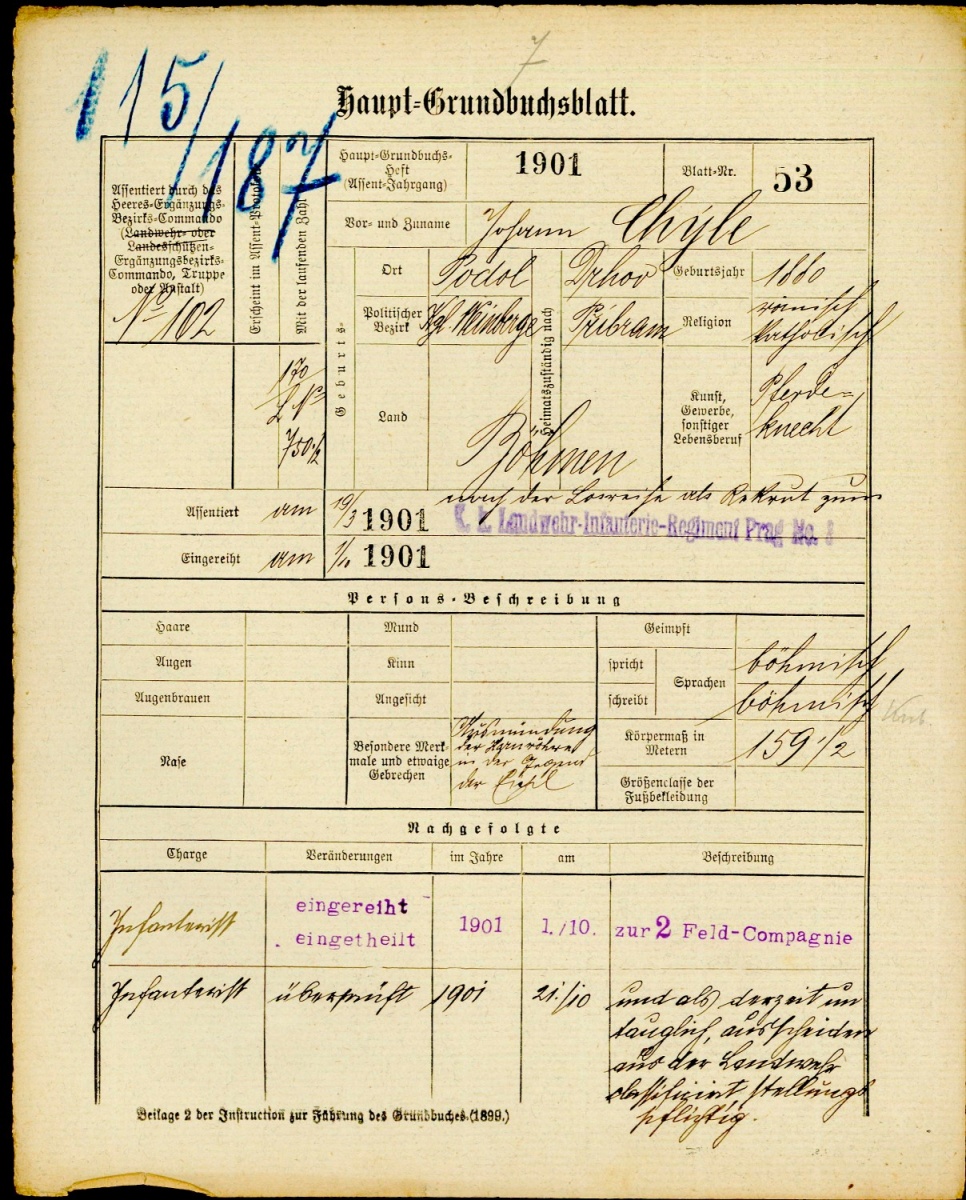 7
115/187
Haupt-Grundbuchsblatt.
Assentiert durch das
Heeres-Ergänzungs-
Bezirks-Commando
(Landwehr- oder
Landesschützen-
Ergänzungsbezirks-
Commando, Truppe
oder Anstalt)
No 102
Erscheint im Assent-Protokolle
Mit der laufenden Zahl
170
L No
750/2
Haupt-Grundbuchs-
Heft
(Assent-Jahrgang)
1901
Blatt-Nr.
53
Vor- und Zuname
Johann Chýle
Gebürtig
Ort
Podol
Heimatszuständig nach
Drhov
Geburtsjahr
1880
Politischer
Bezirk
Kgl. Weinberge
Přibram
Religion
römisch
katholisch
Land
Böhmen
Kunst,
Gewerbe,
sonstiger
Lebensberuf
Pferde-
knecht
Assentiert am 19/3 1901 nach der Losreihe als Rekrut zum
K. k. Landwehr-Infanterie-Regiment Prag No. 8
Eingereiht am 1/10 1901
Persons-Beschreibung
Haare
Mund
Geimpft
Augen
Kinn
spricht
Sprachen
böhmisch
Augenbrauen
Angesicht
schreibt
böhmisch
Nase
Besondere Merk-
male und etwaige
Gebrechen
Ausmündung
der Harnröhre
in der Gegend
der Eichel
Körpermaß in
Metern
159 1/2
Größenclasse der
Fußbekleidung
Nachgefolgte
Charge Veränderungen im Jahre am Beschreibung
Infanterist eingereiht
eingetheilt 1901 1./10. zur 2 Feld-Compagnie
Infanterist überprüft 1901 21./10 und als derzeit un
tauglich, ausscheiden
aus der Landwehr
classificirt, stellungs
pflichtig.
Beilage 2 der Instruction zur Führung des Grundbuches (1899.)